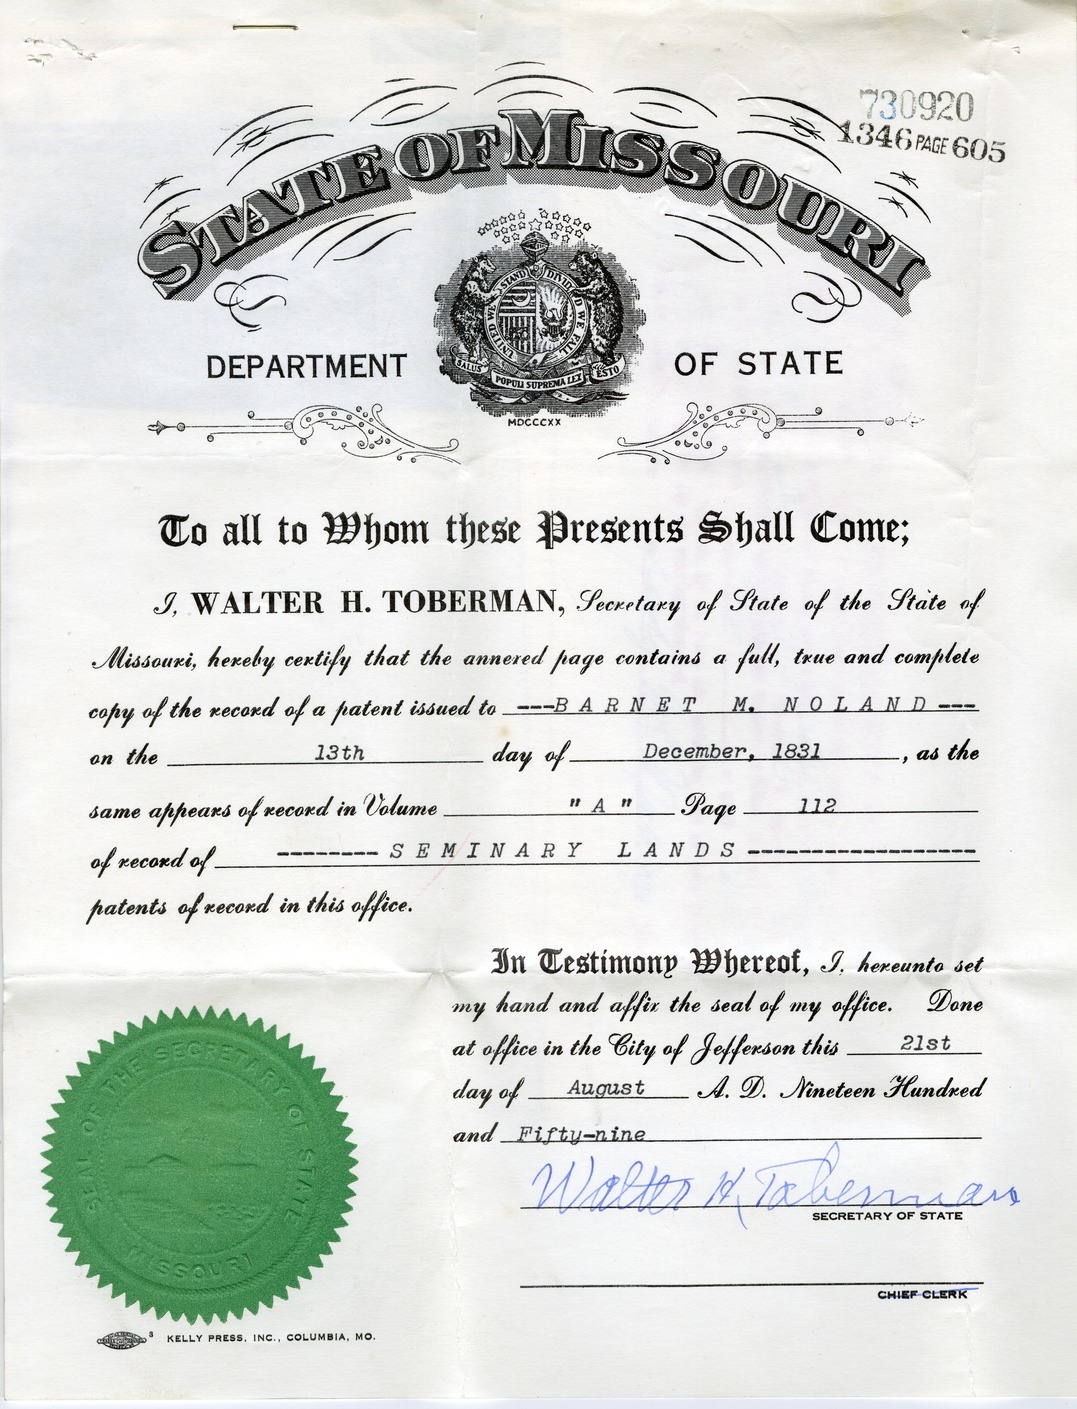 730920
1346 PAGE 605
STATE OF MISSOURI
UNITED WE STAND DIVIDED WE FALL
SALUS POPULI SUPREMA LEX ESTO
MDCCCXX
DEPARTMENT OF STATE
To all to Whom these Presents Shall Come;
I, WALTER H. TOBERMAN, Secretary of State of the State of
Missouri, hereby certify that the annexed page contains a full, true and complete
copy of the record of a patent issued to ---BARNET M. NOLAND---
on the 13th day of December, 1831, as the
same appears of record in Volume "A" Page 112
of record of --------SEMINARY LANDS------------------
patents of record in this office.
In Testimony Whereof, I, hereunto set
my hand and affix the seal of my office. Done
at office in the City of Jefferson this 21st
day of August A. D. Nineteen Hundred
and Fifty-nine
Walter H. Toberman
SECRETARY OF STATE
CHIEF CLERK
SEAL OF THE SECRETARY OF STATE
MISSOURI
3 KELLY PRESS, INC., COLUMBIA, MO.